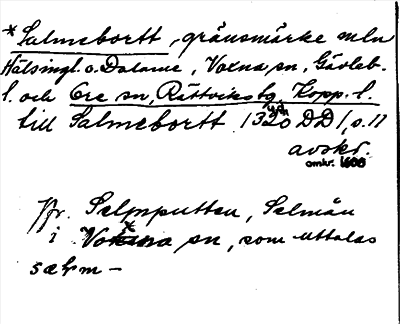 *Salmebortt, gränsmärke mln
Hälsingl. o. Dalarne, Voxna sn, Gävleb.
l. och Ore sn, Rättviks tg, Kopp. l.
till Salmebortt 1320 DD 1, s. 11
avskr.
omkr. 1600
Jfr. Selmputten, Selmån
i Voxna sn, som uttalas
sælm –